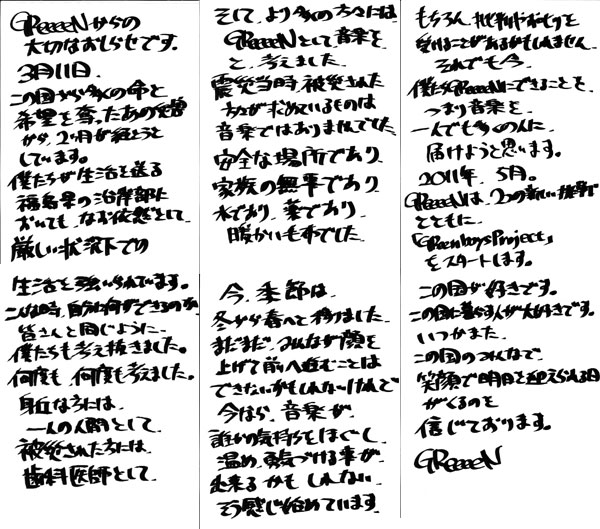 GReeeeNからの
大切なおしらせです。
3月11日、
この国から多くの命と
希望を奪ったあの災害
から、2ヶ月が経とうと
しています。
僕たちが生活を送る
福島県の沿岸部に
おいても、なお依然として、
厳しい状況下での
生活を強いられています。
こんな時、自分に何ができるのか、
皆さんと同じように、
僕たちも考え抜きました。
何度も、何度も考えました。
身近な方には、
一人の人間として、
被災された方には、
歯科医師として、
そして、より多くの方々には
GReeeeNとして音楽を、
と、考えました。
震災当時、被災された
方々が求めているものは
音楽ではありませんでした。
安全な場所であり、
家族の無事であり、
水であり、薬であり、
暖かいもので��た。
今、季節は、
冬から春へと移りました。
まだまだ、みんなが顔を
上げて前へ進むことは
できないかもしれないけれど
今なら、音楽が、
誰かの気持ちをほぐし、
温め、勇気づける事が
出来るかもしれない、
そう感じ始めています。
もちろん、批判やお叱りを
受けることがあるかもしれません。
それでも今、
僕たちGReeeeNにできることを、
つまり音楽を、
一人でも多くの人に、
届けようと思います。
2011年、5月。
GReeeeNは、2つの新しい
とともに、
「GReen boys Project」
をスタートします。
この国が好きです。
この国に暮らす人が大好きです。
いつかまた、
この国のみんなで、
笑顔で明日を迎えられる日
がくるのを
信じております。
GReeeeN